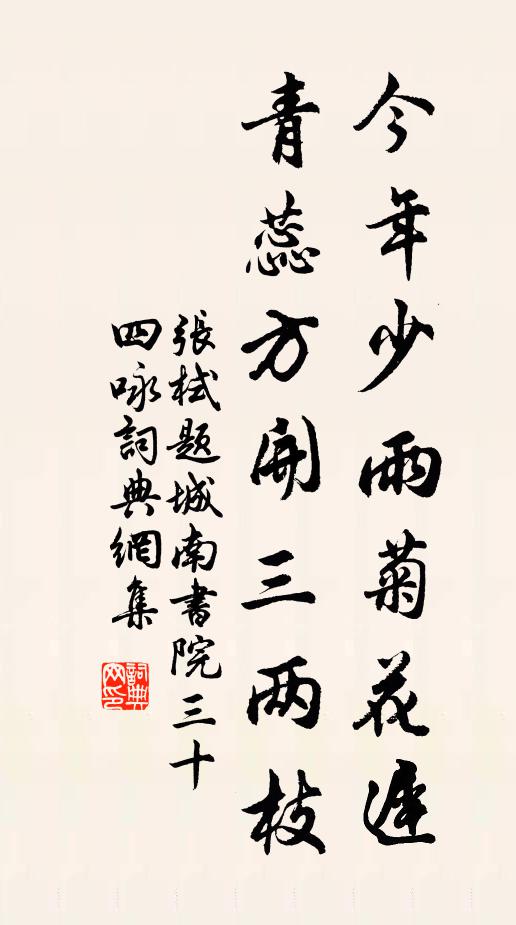 今年少雨菊花遲
青蕊方開三两枝
張栻题城南書院三十
四咏詞典網集
詞典网印